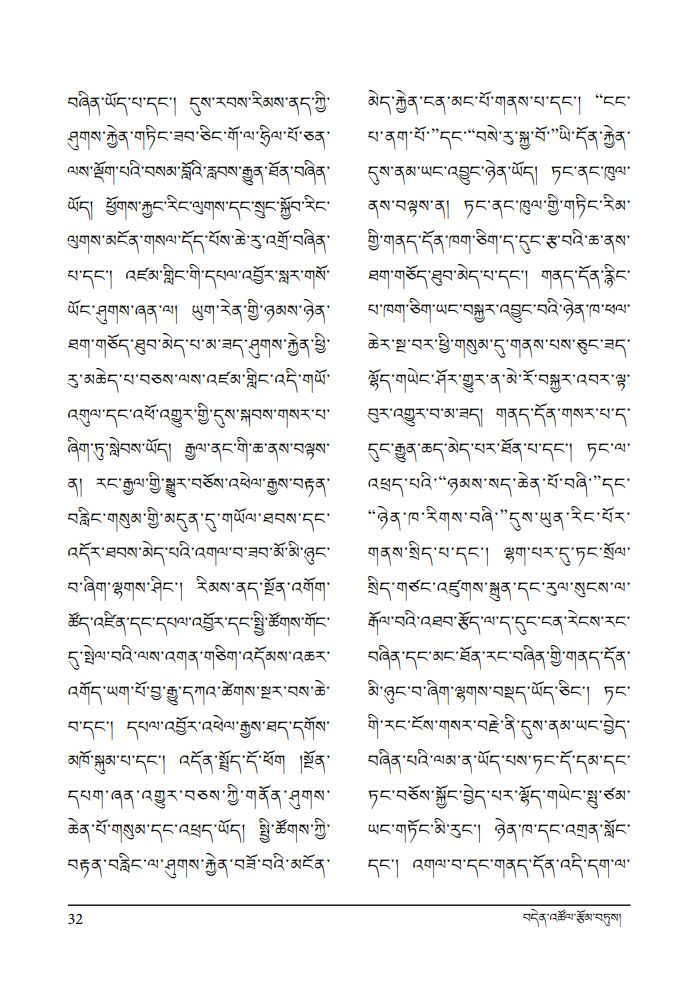 བཞིན་ཡོད་པ་དང་། དུས་རབས་རིམས་ནད་ཀྱི་
ཤུགས་རྐྱེན་གཏིང་ཟབ་ཅིང་གོ་ལ་ཧྲིལ་པོ་ཅན་
ལས་ལྡོག་པའི་བསམ་བློའི་རླབས་རྒྱུན་ཐོན་བཞིན་
ཡོད། ཕྱོགས་རྐྱང་རིང་ལུགས་དང་སྲུང་སྐྱོབ་རིང་
ལུགས་མངོན་གསལ་དོད་པོས་ཆེ་རུ་འགྲོ་བཞིན་
པ་དང་། འཛམ་གླིང་གི་དཔལ་འབྱོར་སླར་གསོ་
ཡོང་ཤུགས་ཞན་ལ། ཡུག་རེན་གྱི་ཉམས་ཉེན་
ཐག་གཅོད་ཐུབ་མེད་པ་མ་ཟད་ཤུགས་རྐྱེན་ཕྱི་
རུ་མཆེད་པ་བཅས་ལས་འཛམ་གླིང་འདི་གཡོ་
འགུལ་དང་འཕོ་འགྱུར་གྱི་དུས་སྐབས་གསར་པ་
ཞིག་ཏུ་སླེབས་ཡོད། རྒྱལ་ནང་གི་ཆ་ནས་བལྟས་
ན། རང་རྒྱལ་གྱི་སྒྱུར་བཅོས་འཕེལ་རྒྱས་བརྟན་
བརླིང་གསུམ་གྱི་མདུན་དུ་གཡོལ་ཐབས་དང་
འདོར་ཐབས་མེད་པའི་འགལ་བ་ཟབ་མོ་མི་ཉུང་
བ་ཞིག་ལྷགས་ཤིང་། རིམས་ནད་སྔོན་འགོག་
ཚོད་འཛིན་དང་དཔལ་འབྱོར་དང་སྤྱི་ཚོགས་གོང་
དུ་སྤེལ་བའི་ལས་འགན་གཅིག་འདོམས་འཆར་
འགོད་ཡག་པོ་བྱ་རྒྱུ་དཀའ་ཚེགས་སྔར་བས་ཆེ་
བ་དང་། དཔལ་འབྱོར་འཕེལ་རྒྱས་ཐད་དགོས་
མཁོ་སྐུམ་པ་དང་། འདོན་སྤྲོད་དོ་ཕོག །སྔོན་
དཔག་ཞན་འགྱུར་བཅས་ཀྱི་གནོན་ཤུགས་
ཆེན་པོ་གསུམ་དང་འཕྲད་ཡོད། སྤྱི་ཚོགས་ཀྱི་
བརྟན་བརླིང་ལ་ཤུགས་རྐྱེན་བཟོ་བའི་མངོན་
མེད་རྐྱེན་ངན་མང་པོ་གནས་པ་དང་། “ངང་
པ་ནག་པོ་”དང་“བསེ་རུ་སྐྱ་བོ་”ཡི་དོན་རྐྱེན་
དུས་ནམ་ཡང་འབྱུང་ཉེན་ཡོད། ཏང་ནང་ཁུལ་
ནས་བལྟས་ན། ཏང་ནང་ཁུལ་གྱི་གཏིང་རིམ་
གྱི་གནད་དོན་ཁག་ཅིག་ད་དུང་རྩ་བའི་ཆ་ནས་
ཐག་གཅོད་ཐུབ་མེད་པ་དང་། གནད་དོན་རྙིང་
པ་ཁག་ཅིག་ཡང་བསྐྱར་འབྱུང་བའི་ཉེན་ཁ་ཕལ་
ཆེར་སྔ་བར་ཕྱི་གསུམ་དུ་གནས་པས་ཅུང་ཟད་
ལྷོད་གཡེང་ཤོར་གྱུར་ན་མེ་རོ་བསྐྱར་འབར་ལྟ་
བུར་འགྱུར་བ་མ་ཟད། གནད་དོན་གསར་པ་ད་
དུང་རྒྱུན་ཆད་མེད་པར་ཐོན་པ་དང་། ཏང་ལ་
འཕྲད་པའི་“ཉམས་སད་ཆེན་པོ་བཞི་”དང་
“ཉེན་ཁ་རིགས་བཞི་”དུས་ཡུན་རིང་པོར་
གནས་སྲིད་པ་དང་། ལྷག་པར་དུ་ཏང་སྲོལ་
སྲིད་གཙང་འཛུགས་སྐྲུན་དང་རུལ་སུངས་ལ་
རྒོལ་བའི་འཐབ་རྩོད་ལ་ད་དུང་ངན་རེངས་རང་
བཞིན་དང་མང་ཐོན་རང་བཞིན་གྱི་གནད་དོན་
མི་ཉུང་བ་ཞིག་ལྷགས་བསྡད་ཡོད་ཅིང་། ཏང་
གི་རང་ངོས་གསར་བརྗེ་ནི་དུས་ནམ་ཡང་བྱེད་
བཞིན་པའི་ལམ་ན་ཡོད་པས་ཏང་དོ་དམ་དང་
ཏང་བཅོས་སྐྱོང་བྱེད་པར་ལྷོད་གཡེང་སྤུ་ཙམ་
ཡང་གཏོང་མི་རུང་། ཉེན་ཁ་དང་འགྲན་སློང་
དང་། འགལ་བ་དང་གནད་དོན་འདི་དག་ལ་
32
བདེན་འཚོལ་རྩོམ་བཏུས།